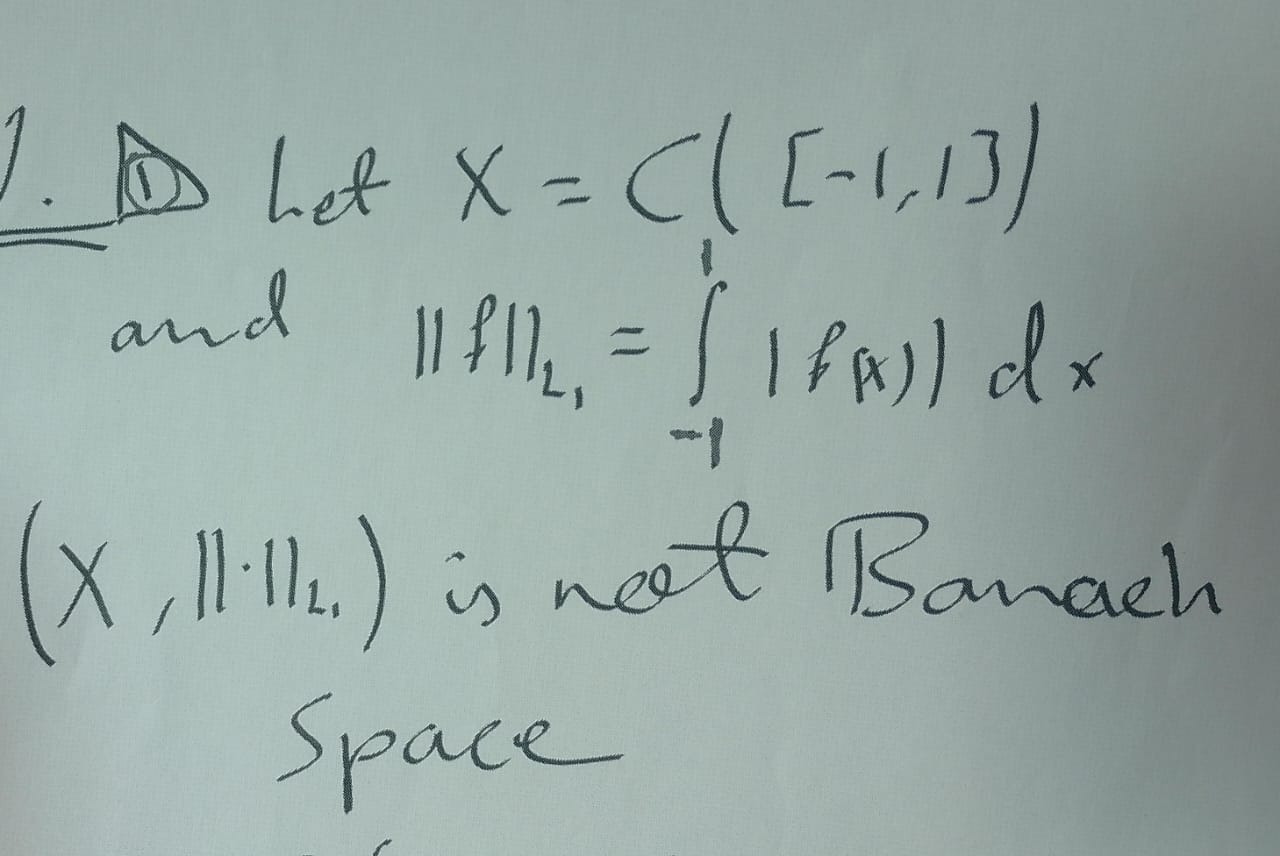 1. ① Let X = C([-1,1])
and ||f||L₁ = ∫₋₁¹ |f(x)| dx
(X, ||·||L₁) is not Banach
Space